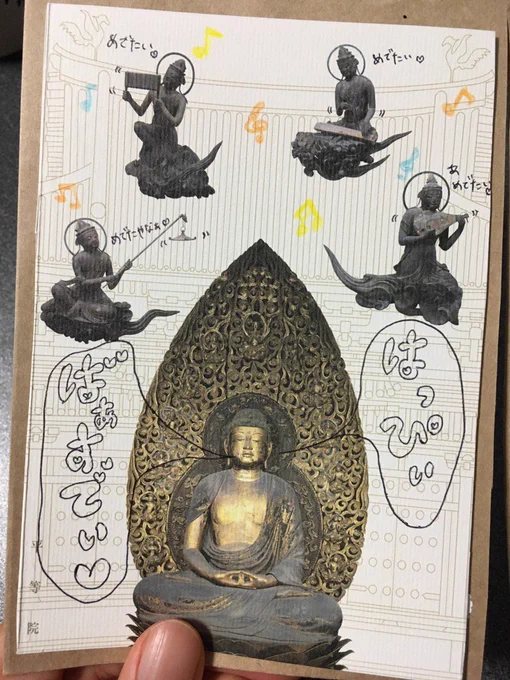 めでたい♡
めでたい♡
あ
めでたい♡
めでたやなぁ♡
はっぴぃ
平等院